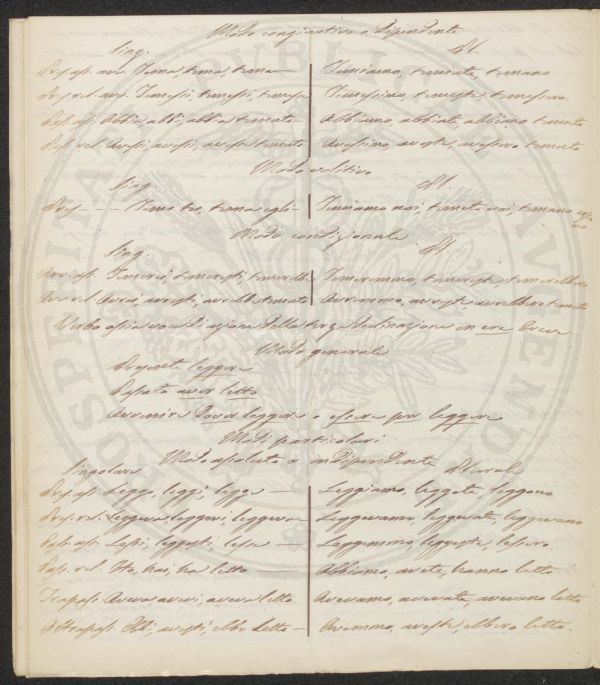 Modo congiuntivo o Dipendente
Sing. Pl.
Pres. ass. avv. Tema, tema, tema — Temiamo, temiate, temano
Pres. rel. avv. Temessi, temessi, temesse Temessimo, temeste, temessero
Pass. ass. Abbia, abbi, abbia temuto — Abbiamo, abbiate, abbiano temuto
Pass. rel. Avessi, avessi, avesse temuto Avessimo, aveste, avessero temuto
Modo volitivo
Sing. Pl.
Temi tu, tema egli — Temiamo noi, temete voi, temano
Modo condizionale
Sing. Pl.
Avv. ass. Temerei, temeresti, temerebbe Temeremmo, temereste, temerebbero
Avv. rel. Avrei, avresti, avrebbe temuto Avremmo, avreste, avrebbero temuto
Verbo ossia voce di azione della terza declinazione in ere breve
Modo generale
Presente leggere
Passato aver letto
Avvenire Dover leggere o essere per leggere
Modi particolari
Modo assoluto o indipendente
Singolare Plurale
Pres. ass. Leggo, leggi, legge — Leggiamo, leggete, leggono
Pres. rel. Leggeva, leggevi, leggeva — Leggevamo, leggevate, leggevano
Pass. ass. Lessi, leggesti, lesse — Leggemmo, leggeste, lessero
Pass. rel. Ho, hai, ha letto — Abbiamo, avete, hanno letto
Trapass. Aveva, avevi, aveva letto Avevamo, avevate, avevano letto
Oltrapass. Ebbi, avesti, ebbe letto — Avemmo, aveste, ebbero letto